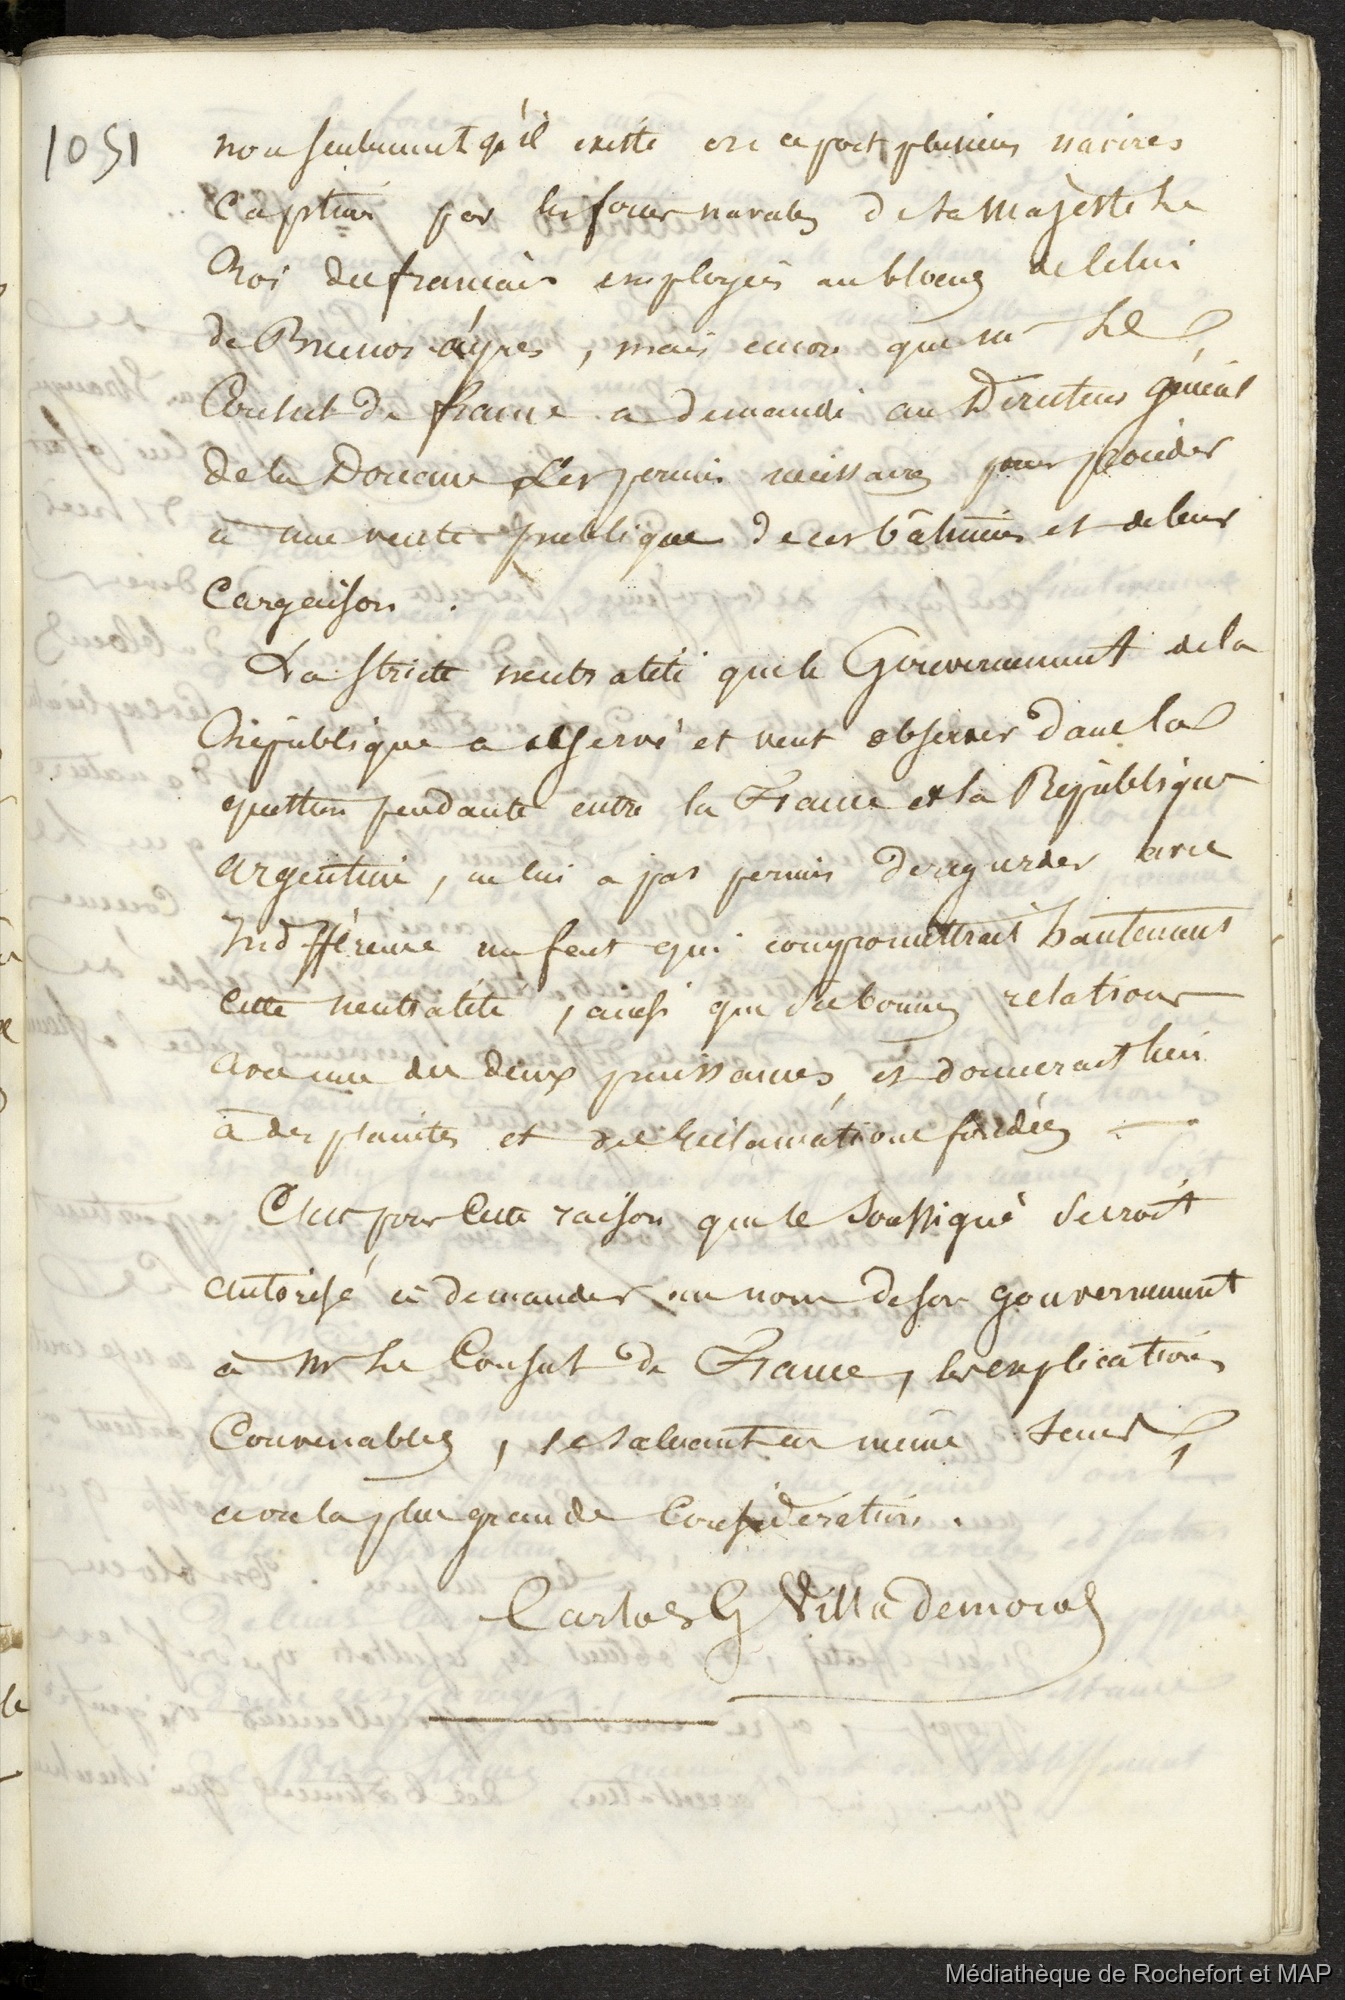 1051
non seulement qu'il existe en ce port plusieurs navires
Capturés par les forces navales de Sa Majesté Le
Roi des français employées au blocus de celui
de Buenos áyres, mais encore que Mr Le
Consul de france a demandé au Directeur général
de la Douane les permis nécessaires pour procéder
à une vente publique de ces bâtimens et de leur
Cargaison.
La stricte neutralité que le Gouvernement de la
République a observé et veut observer dans la
question pendante entre la France et la République
argentine, ne lui a pas permis de regarder avec
Indifférence un fait qui compromettrait hautement
cette neutralité, ainsi que ses bonnes relations
avec une des deux puissances, et donnerait lieu
à des plaintes et des réclamations fondées
C'est pour Cette raison que le Soussigné se croit
autorisé à demander au nom de son gouvernement
à Mr Le Consul de France, les explications
Convenables, le saluant en même tems,
avec la plus grande Considération.
Carlos G Villademoros
Médiathèque de Rochefort et MAP